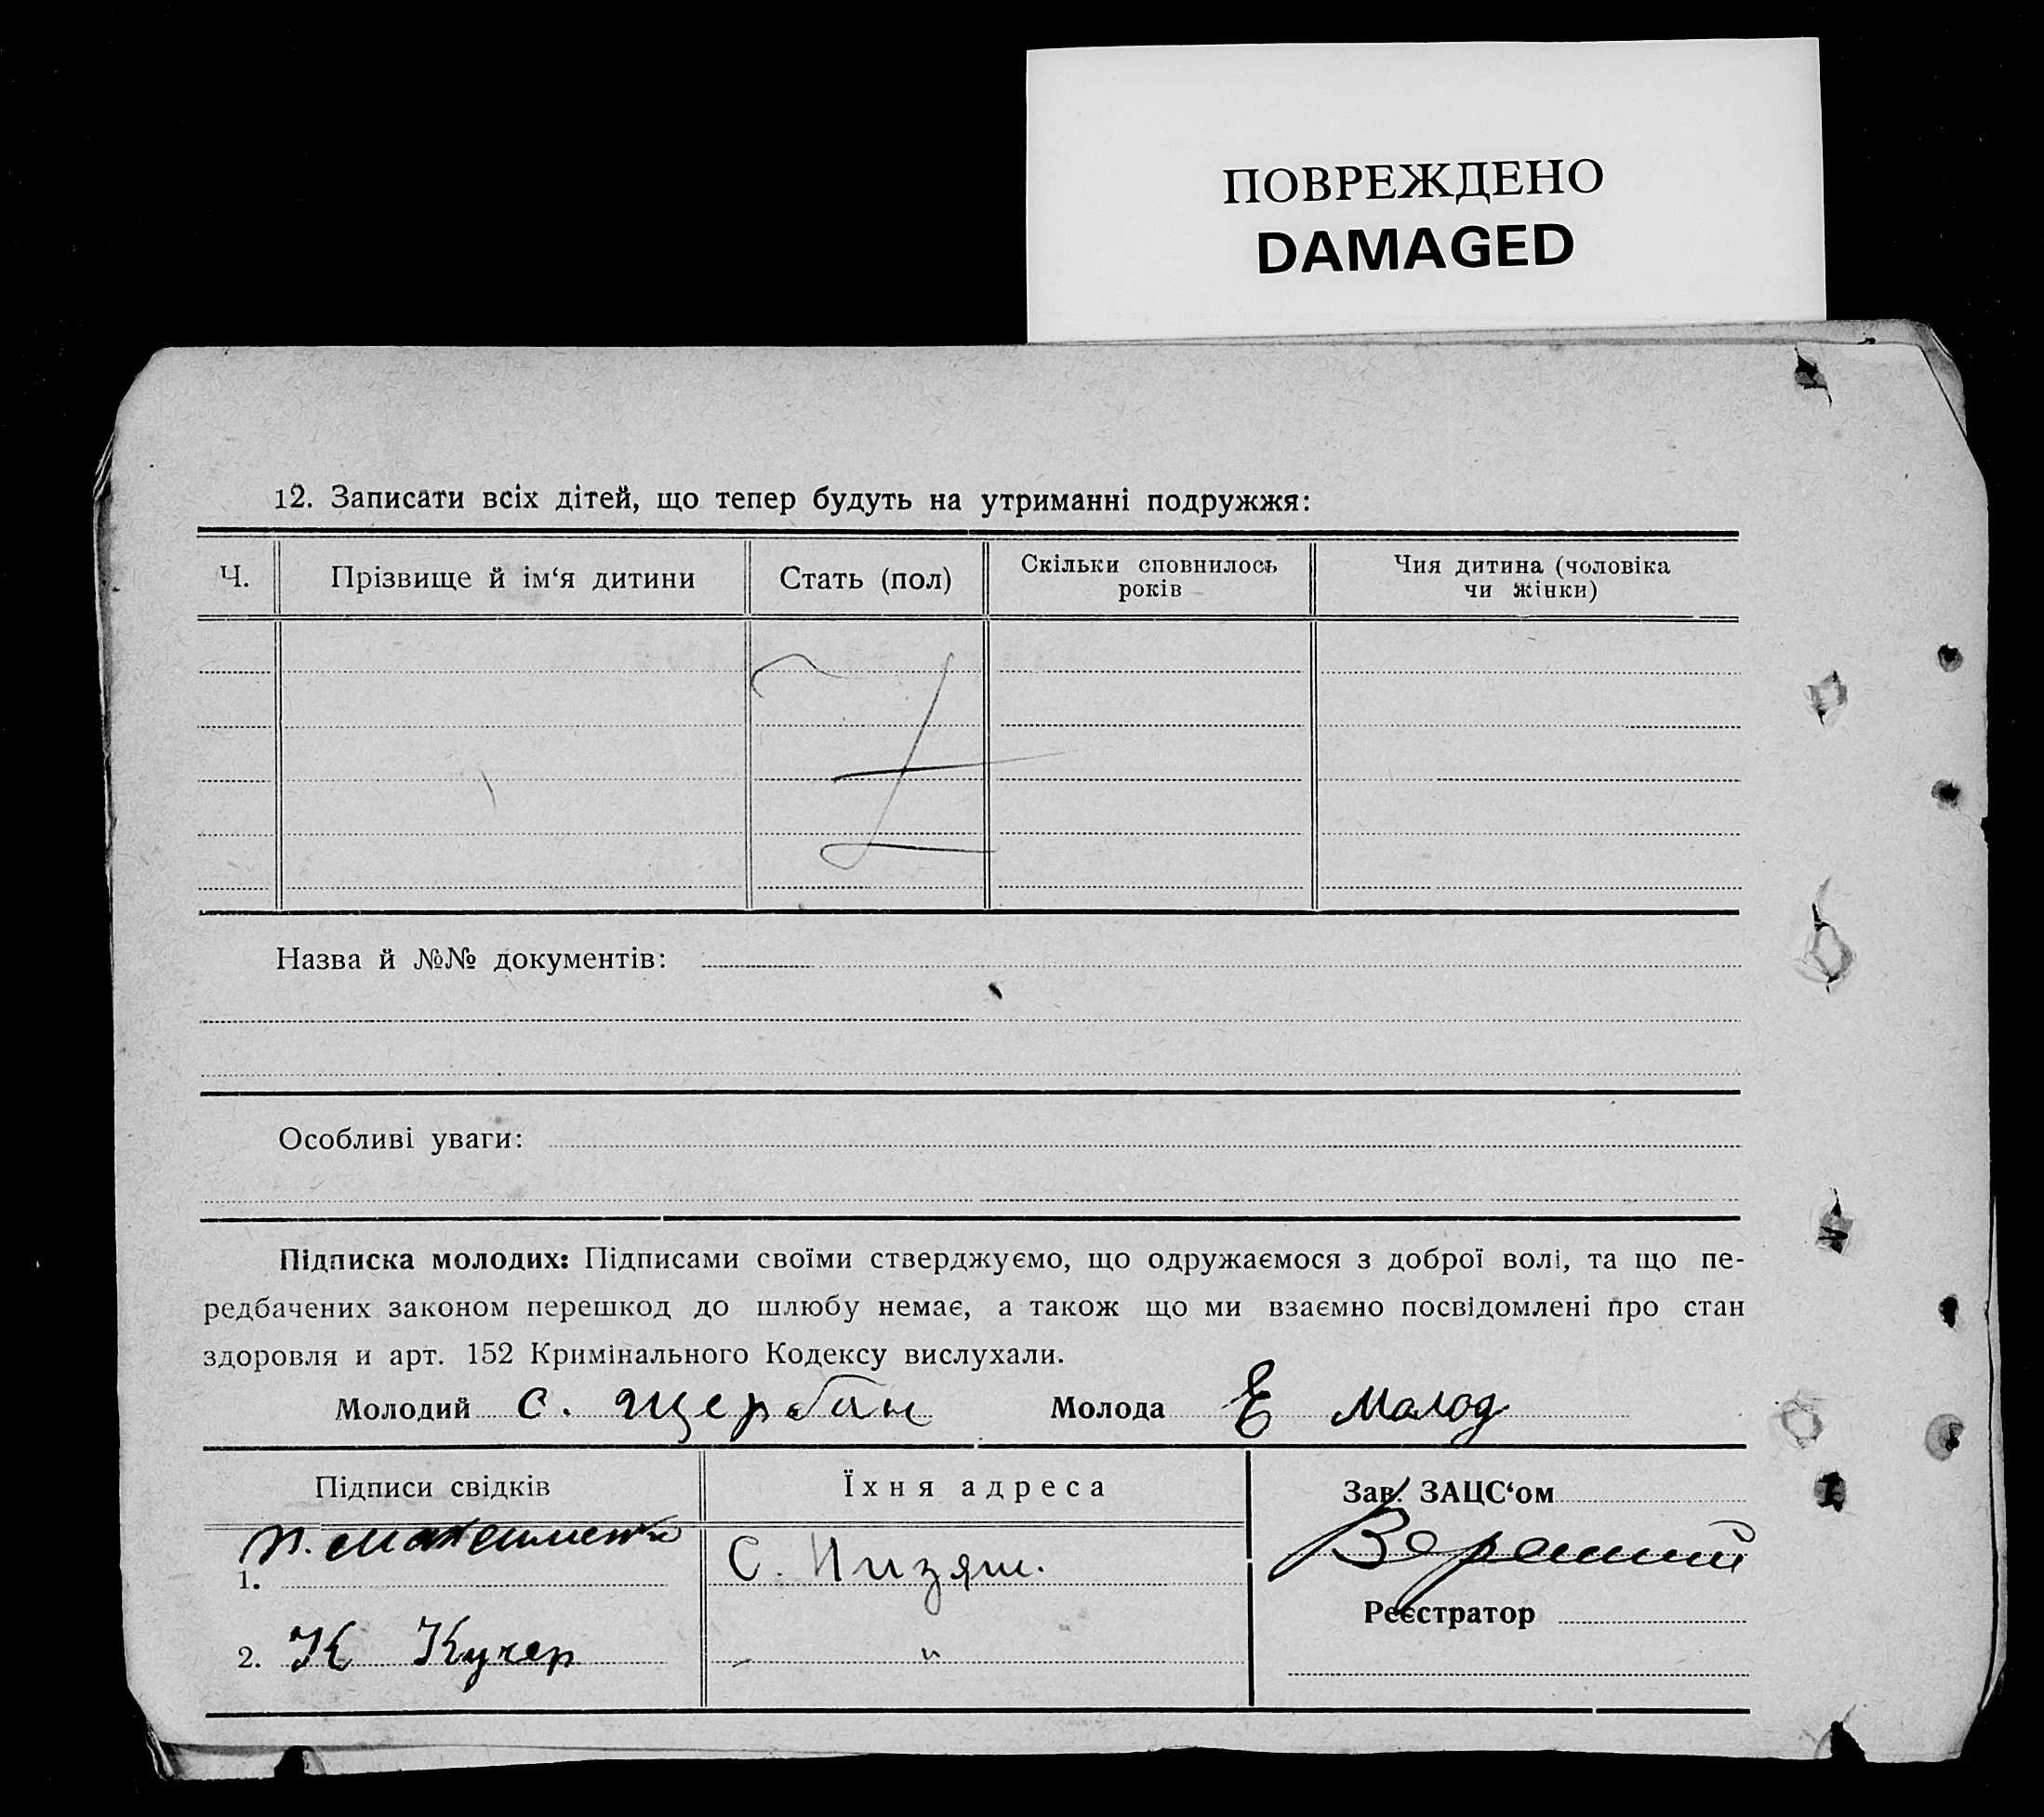 ПОВРЕЖДЕНО
DAMAGED
12. Записати всіх дітей, що тепер будуть на утриманні подружжя:
Ч. Прізвище й ім‘я дитини Стать (пол) Скільки сповнилось років Чия дитина (чоловіка чи жінки)
Z
Назва й №№ документів:
Особливі уваги:
Підписка молодих: Підписами своїми стверджуємо, що одружаємося з доброї волі, та що пе-
редбачених законом перешкод до шлюбу немає, а також що ми взаємно посвідомлені про стан
здоровля и арт. 152 Кримінального Кодексу вислухали.
Молодий С. Щербан Молода Е Молод
Підписи свідків Їхня адреса Зав. ЗАЦС‘ом
1. С.
Реєстратор
2. К Кучер "